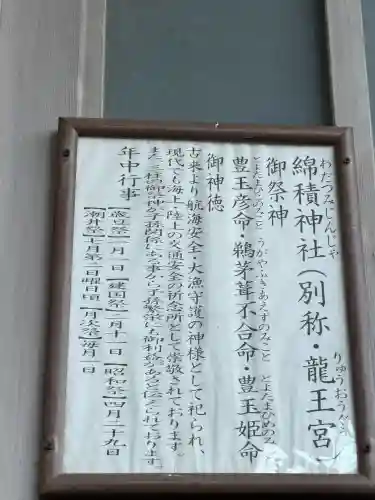 わたつみじんじゃ りゅうおうぐう
綿積神社(別称・龍王宮)
御祭神
とよたまひこのみこと うがやふきあえずのみこと とよたまひめのみこと
豊玉彦命・鵜茅葺不合命・豊玉姫命
御神徳
古来より航海安全・大漁守護の神様として祀られ、
現代でも海上・陸上の交通安全の祈念所として崇敬されております。
また三柱の御神が子孫関係である事から子孫繁栄にも御利益があると伝えられております。
年中行事
【歳旦祭】一月一日【建国祭】二月十一日【昭和祭】四月二十九日
【潮井祭】七月第二日曜日頃【月次祭】毎月一日